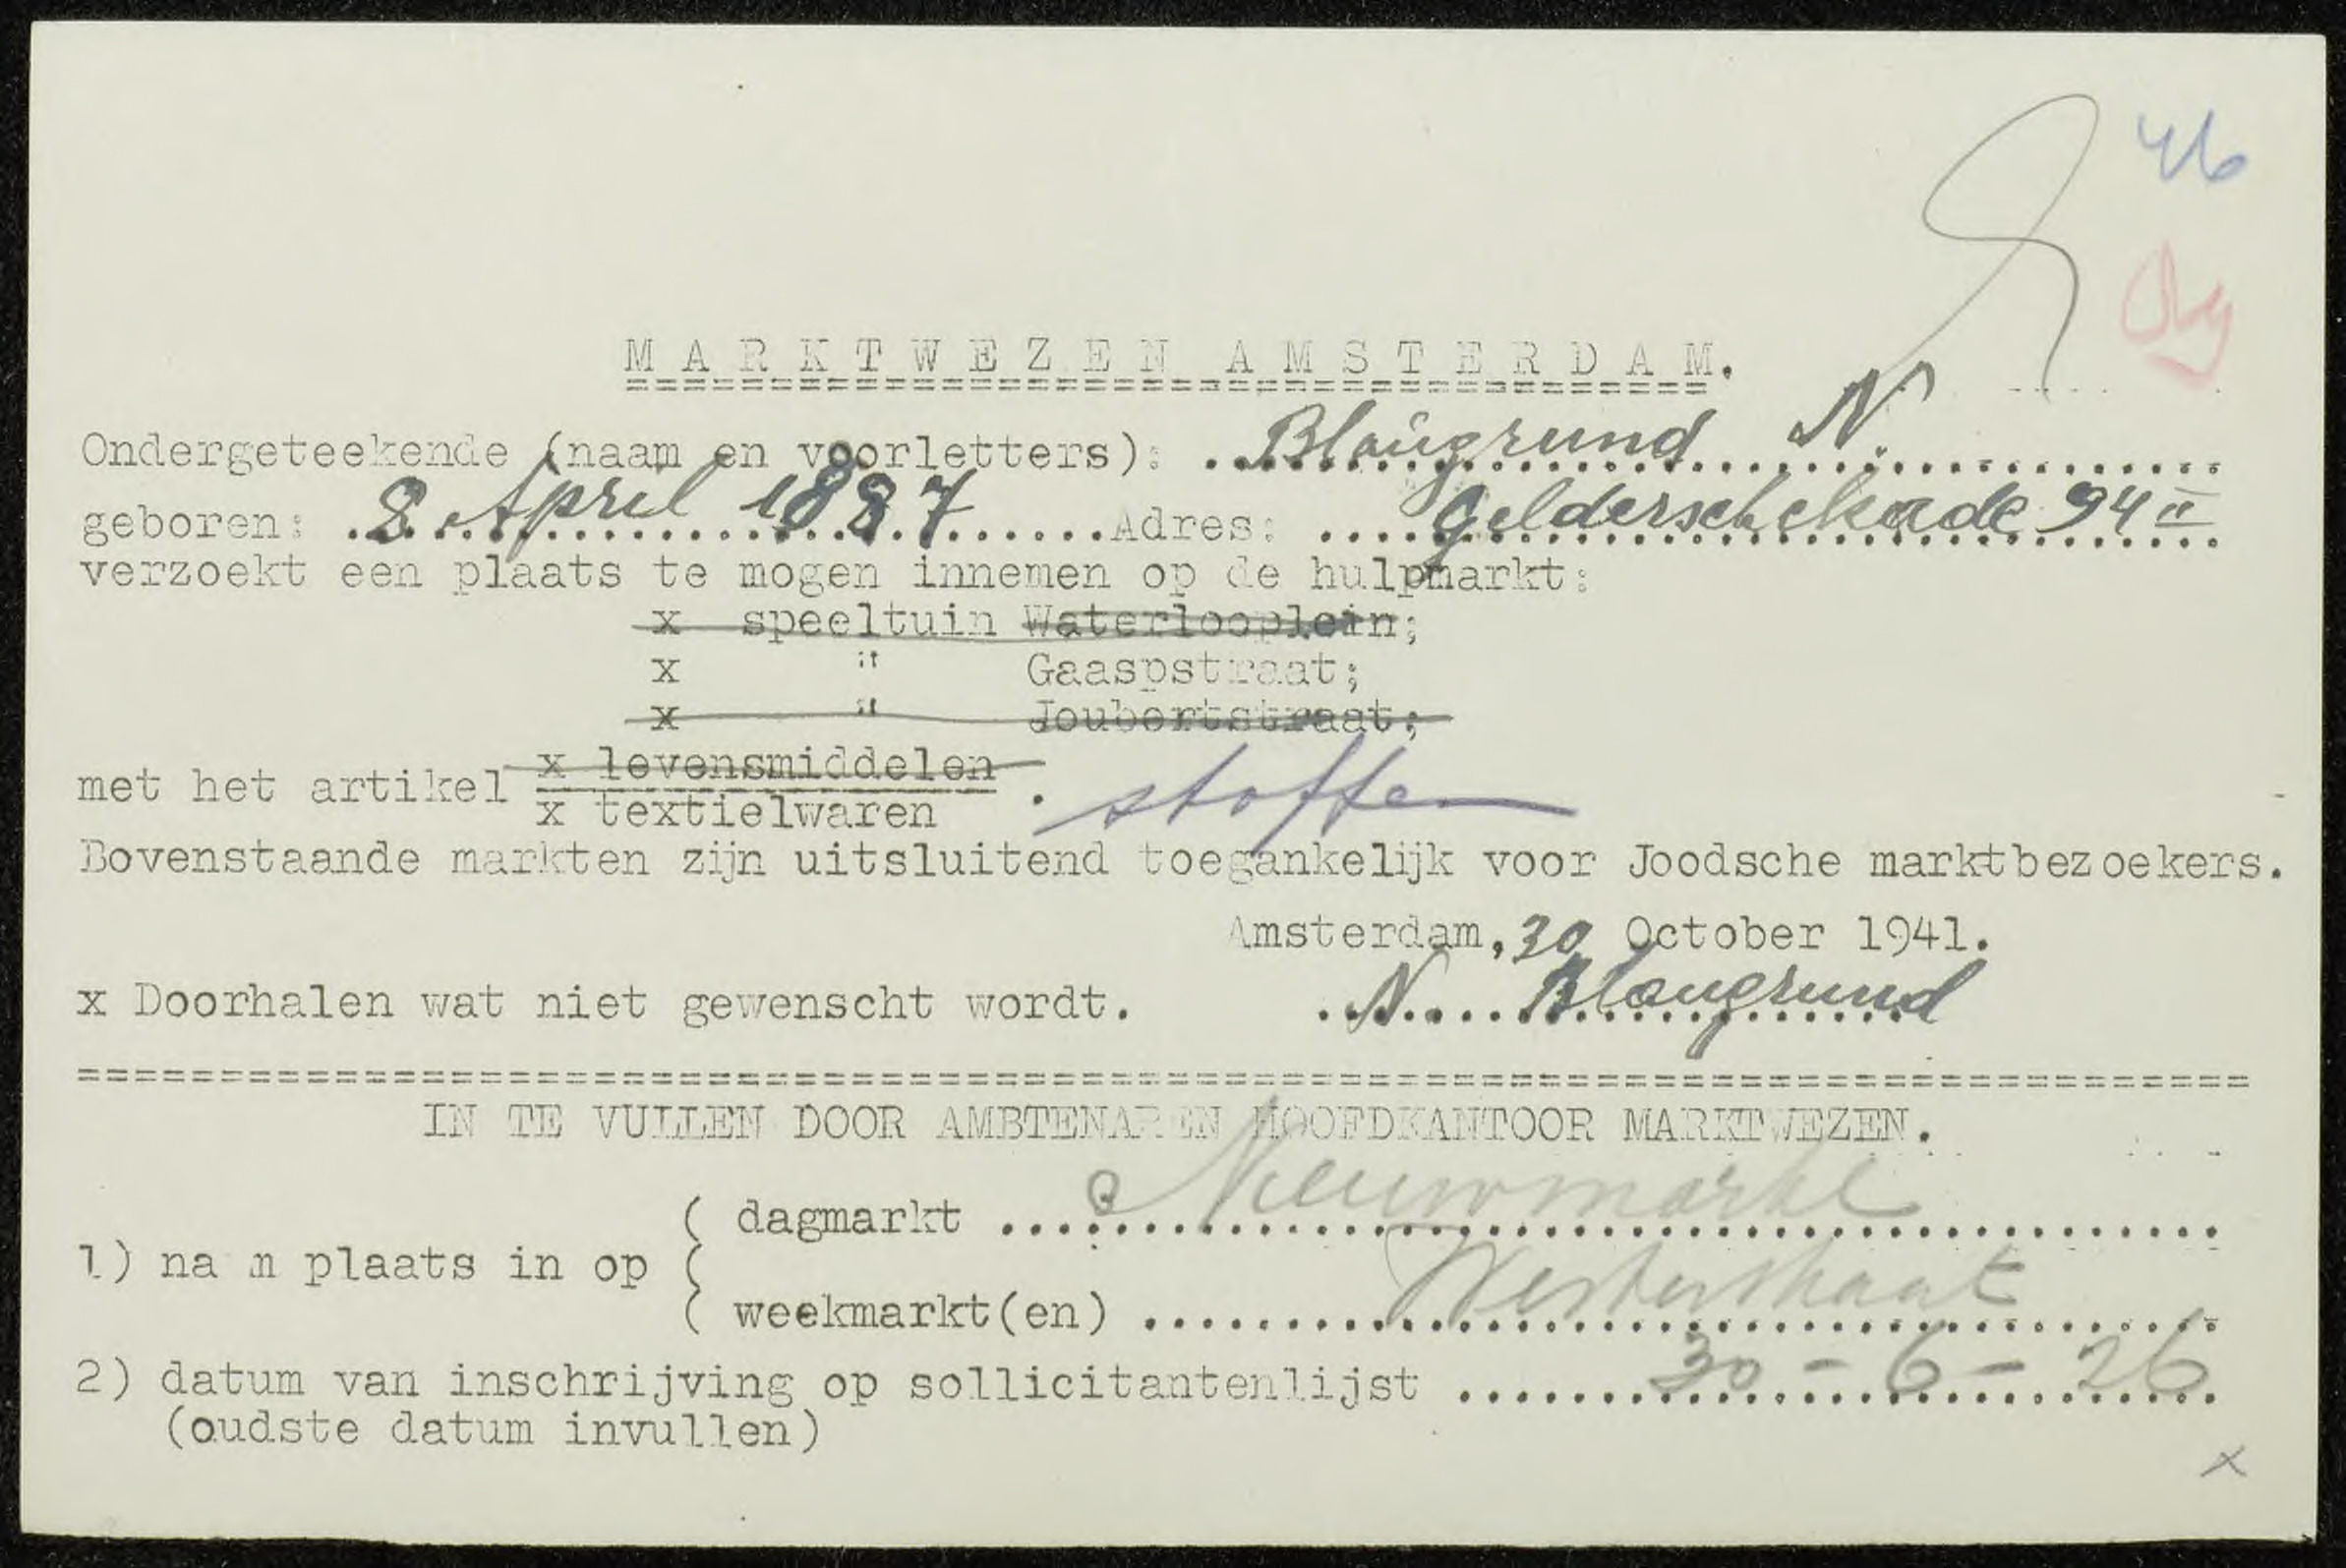 46
MARKTWEZEN AMSTERDAM.
Ondergeteekende (naam en voorletters): Blaugrund N.
geboren: 8 April 1887 Adres: Gelderschekade 94 II
verzoekt een plaats te mogen innemen op de hulpmarkt:
x speeltuin Waterlooplein;
x " Gaaspstraat;
x " Joubertstraat;
met het artikel x levensmiddelen
x textielwaren . stoffen
Bovenstaande markten zijn uitsluitend toegankelijk voor Joodsche marktbezoekers.
Amsterdam, 30 October 1941.
x Doorhalen wat niet gewenscht wordt. N. Blaugrund
IN TE VULLEN DOOR AMBTENAREN HOOFDKANTOOR MARKTWEZEN.
( dagmarkt Nieuwmarkt
1) na m plaats in op (
( weekmarkt(en) Westerstraat
2) datum van inschrijving op sollicitantenlijst 30-6-26
(oudste datum invullen)
x